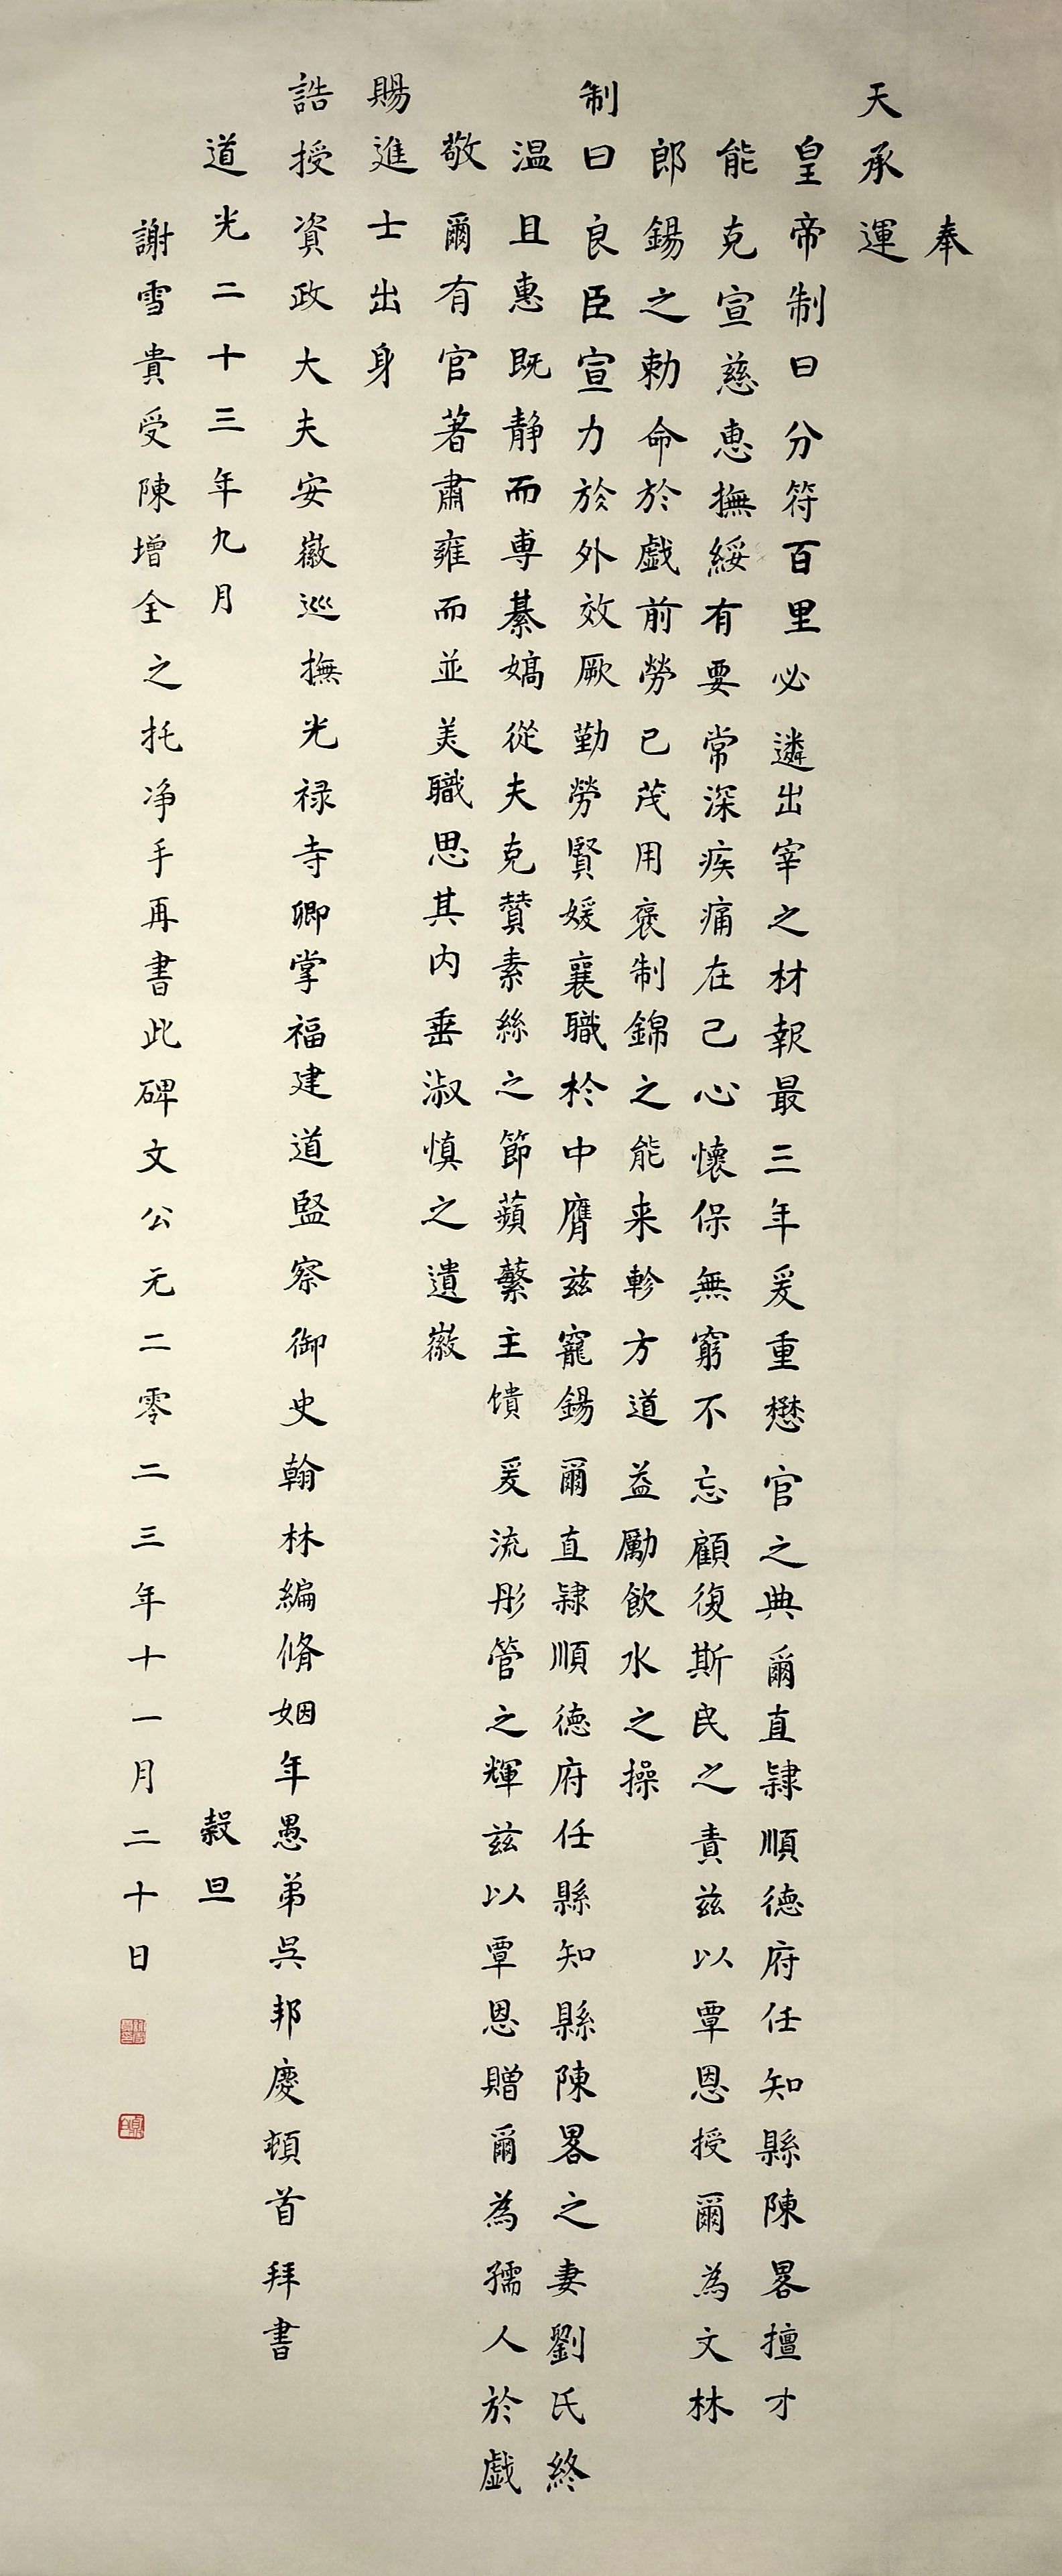 奉
天承運
皇帝制曰分符百里必遴出宰之材報最三年爰重懋官之典爾直隸順德府任知縣陳畧擅才
能克宣慈惠撫綏有要常深疾痛在己心懷保無窮不忘顧復斯民之責兹以覃恩授爾為文林
郎錫之勅命於戲前勞已茂用褒制錦之能来軫方道益勵飲水之操
制曰良臣宣力於外效厥勤勞賢媛襄職於中膺兹寵錫爾直隸順德府任縣知縣陳畧之妻劉氏終
温且惠既静而専綦嫡從夫克贊素絲之節蘋蘩主馈爰流彤管之輝兹以覃恩贈爾為孺人於戲
敬爾有官著肅雍而並美職思其内垂淑慎之遺徽
賜進士出身
誥授資政大夫安徽巡撫光禄寺卿掌福建道監察御史翰林編脩姻年愚弟呉邦慶頓首拜書
道光二十三年九月穀旦
謝雪貴受陳增全之托净手再書此碑文公元二零二三年十一月二十日